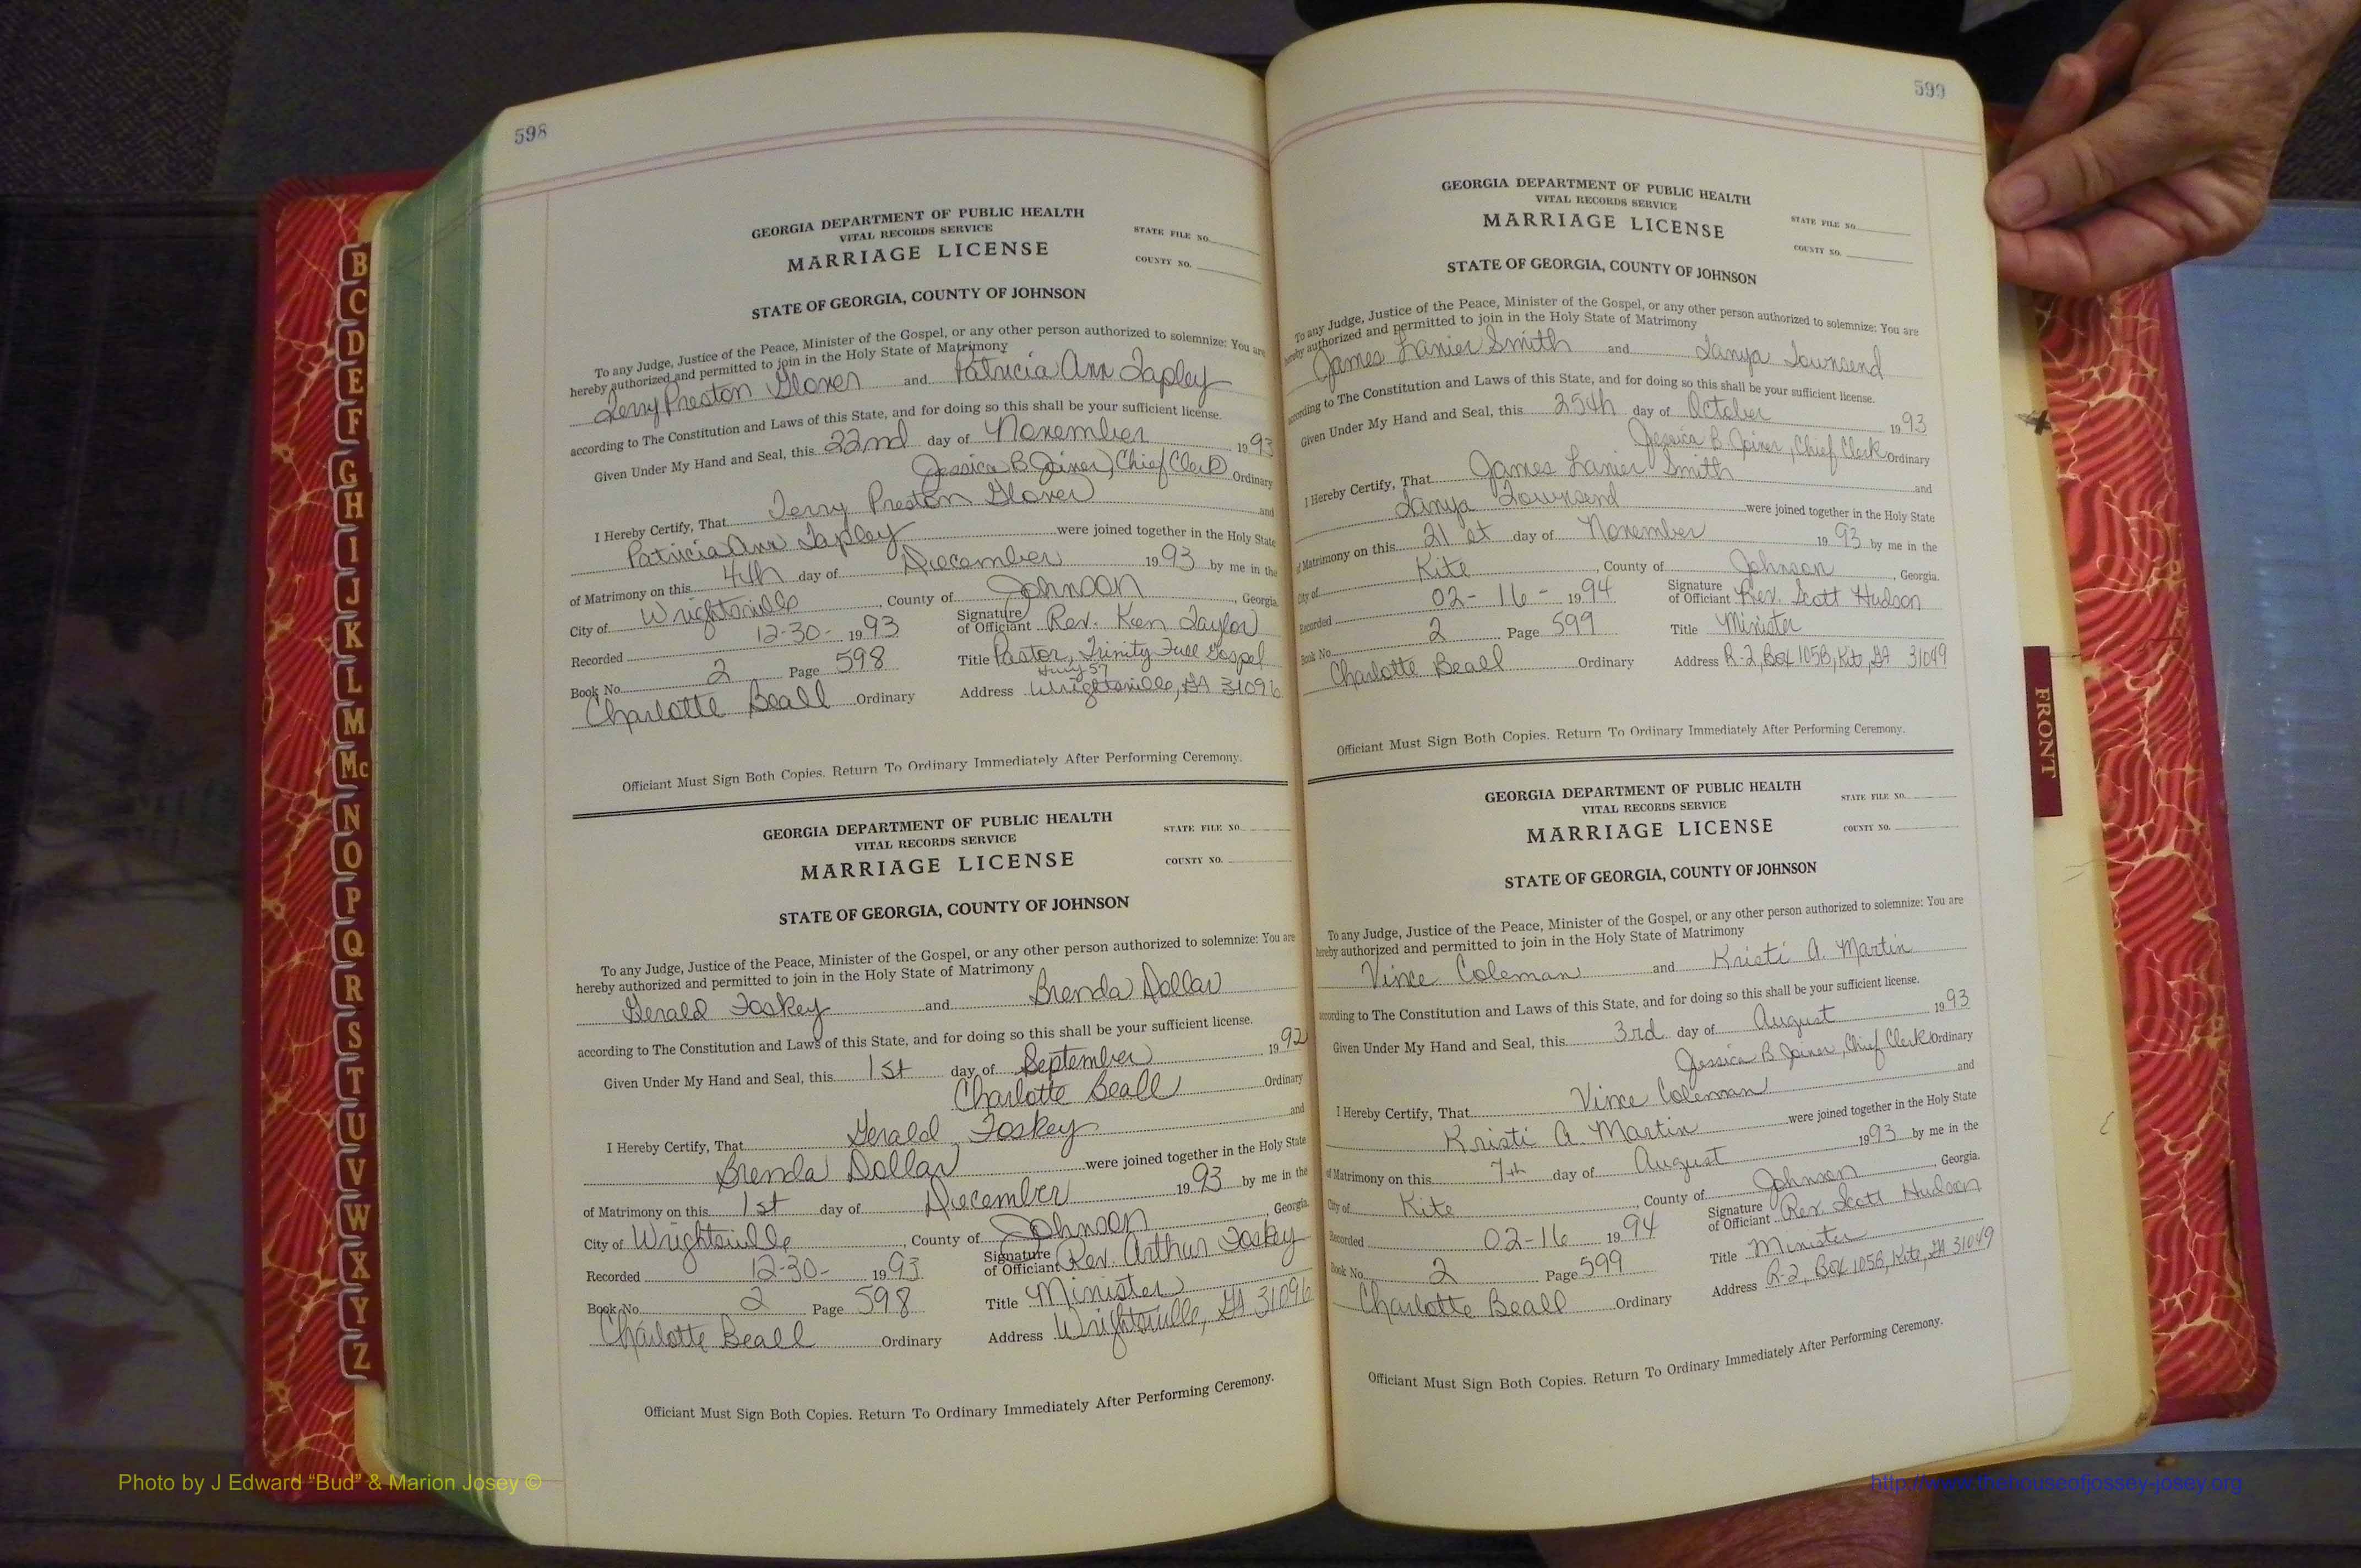 598
GEORGIA DEPARTMENT OF PUBLIC HEALTH
VITAL RECORDS SERVICE
MARRIAGE LICENSE
STATE FILE NO.
COUNTY NO.
STATE OF GEORGIA, COUNTY OF JOHNSON
To any Judge, Justice of the Peace, Minister of the Gospel, or any other person authorized to solemnize: You are
hereby authorized and permitted to join in the Holy State of Matrimony
Jerry Preston Glover and Patricia Ann Tapley
according to The Constitution and Laws of this State, and for doing so this shall be your sufficient license.
Given Under My Hand and Seal, this 22nd day of November 1993
Jessica B Joiner, Chief Clerk Ordinary
I Hereby Certify, That Jerry Preston Glover and
Patricia Ann Tapley were joined together in the Holy State
of Matrimony on this 4th day of December 1993 by me in the
City of Wrightsville, County of Johnson, Georgia.
Recorded 12-30- 1993 Signature of Officiant Rev. Ken Taylor
Book No. 2 Page 598 Title Pastor, Trinity Full Gospel
Hwy 57
Charlotte Beall Ordinary Address Wrightsville, GA 31096
Officiant Must Sign Both Copies. Return To Ordinary Immediately After Performing Ceremony.
GEORGIA DEPARTMENT OF PUBLIC HEALTH
VITAL RECORDS SERVICE
MARRIAGE LICENSE
STATE FILE NO.
COUNTY NO.
STATE OF GEORGIA, COUNTY OF JOHNSON
To any Judge, Justice of the Peace, Minister of the Gospel, or any other person authorized to solemnize: You are
hereby authorized and permitted to join in the Holy State of Matrimony
Gerald Foskey and Brenda Dollar
according to The Constitution and Laws of this State, and for doing so this shall be your sufficient license.
Given Under My Hand and Seal, this 1st day of September 1992
Charlotte Beall Ordinary
I Hereby Certify, That Gerald Foskey and
Brenda Dollar were joined together in the Holy State
of Matrimony on this 1st day of December 1993 by me in the
City of Wrightsville, County of Johnson, Georgia.
Recorded 12-30- 1993 Signature of Officiant Rev. Arthur Foskey
Book No. 2 Page 598 Title Minister
Charlotte Beall Ordinary Address Wrightsville, GA 31096
Officiant Must Sign Both Copies. Return To Ordinary Immediately After Performing Ceremony.
599
GEORGIA DEPARTMENT OF PUBLIC HEALTH
VITAL RECORDS SERVICE
MARRIAGE LICENSE
STATE FILE NO.
COUNTY NO.
STATE OF GEORGIA, COUNTY OF JOHNSON
To any Judge, Justice of the Peace, Minister of the Gospel, or any other person authorized to solemnize: You are
hereby authorized and permitted to join in the Holy State of Matrimony
James Lanier Smith and Tanya Townsend
according to The Constitution and Laws of this State, and for doing so this shall be your sufficient license.
Given Under My Hand and Seal, this 25th day of October 1993
Jessica B Joiner, Chief Clerk Ordinary
I Hereby Certify, That James Lanier Smith and
Tanya Townsend were joined together in the Holy State
of Matrimony on this 21st day of November 1993 by me in the
City of Kite, County of Johnson, Georgia.
Recorded 02-16- 1994 Signature of Officiant Rev. Scott Hudson
Book No. 2 Page 599 Title Minister
Charlotte Beall Ordinary Address R-2, Box 105B, Kite, GA 31049
Officiant Must Sign Both Copies. Return To Ordinary Immediately After Performing Ceremony.
GEORGIA DEPARTMENT OF PUBLIC HEALTH
VITAL RECORDS SERVICE
MARRIAGE LICENSE
STATE FILE NO.
COUNTY NO.
STATE OF GEORGIA, COUNTY OF JOHNSON
To any Judge, Justice of the Peace, Minister of the Gospel, or any other person authorized to solemnize: You are
hereby authorized and permitted to join in the Holy State of Matrimony
Vince Coleman and Kristi A. Martin
according to The Constitution and Laws of this State, and for doing so this shall be your sufficient license.
Given Under My Hand and Seal, this 3rd day of August 1993
Jessica B Joiner, Chief Clerk Ordinary
I Hereby Certify, That Vince Coleman and
Kristi A. Martin were joined together in the Holy State
of Matrimony on this 7th day of August 1993 by me in the
City of Kite, County of Johnson, Georgia.
Recorded 02-16 1994 Signature of Officiant Rev. Scott Hudson
Book No. 2 Page 599 Title Minister
Charlotte Beall Ordinary Address R-2, Box 105B, Kite, GA 31049
Officiant Must Sign Both Copies. Return To Ordinary Immediately After Performing Ceremony.
B
C
D
E
F
G
H
I
J
K
L
M
Mc
N
O
P
Q
R
S
T
U
V
W
X
Y
Z
FRONT
Photo by J Edward “Bud” & Marion Josey ©
http://www.thehouseofjossey-josey.org